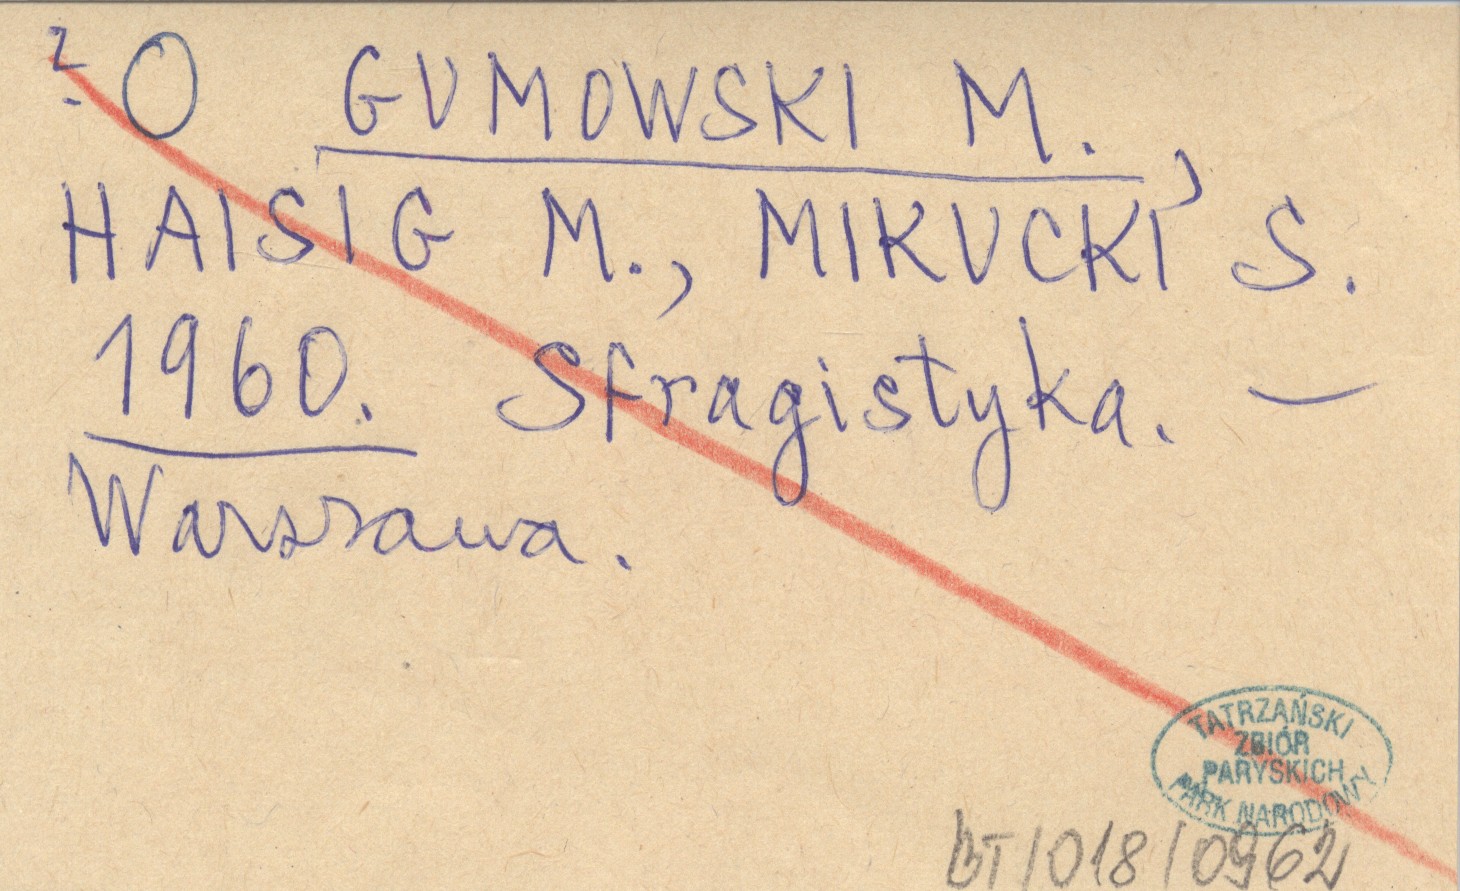 ? O GUMOWSKI M.,
HAISIG M., MIKUCKI S.
1960. Sfragistyka. —
Warszawa.
TATRZAŃSKI
ZBIÓR
PARYSKICH
PARK NARODOWY
BT/018/0962